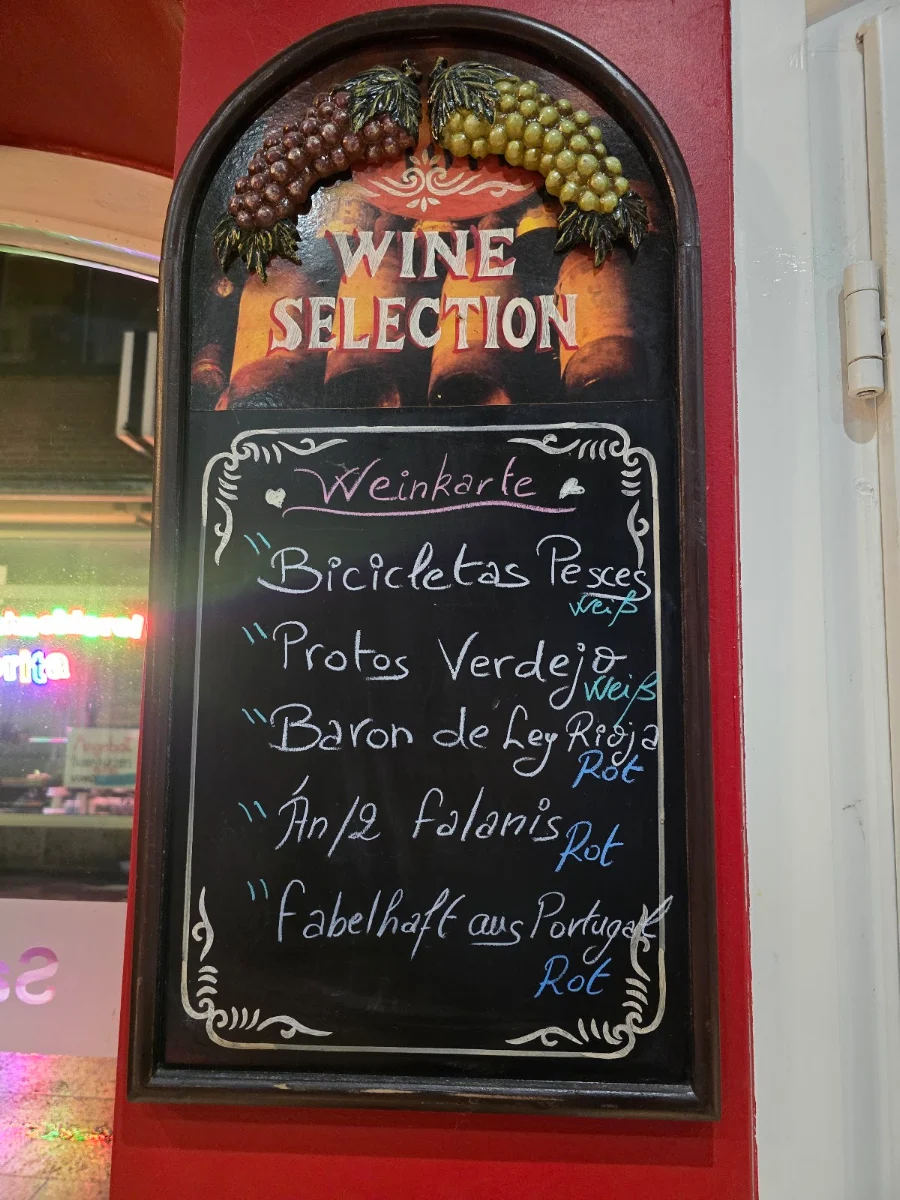 WINE
SELECTION
Weinkarte
" Bicicletas Pesces
weiß
" Protos Verdejo
weiß
" Baron de Ley Rioja
Rot
" Án/2 falanis
Rot
" Fabelhaft aus Portugal
Rot